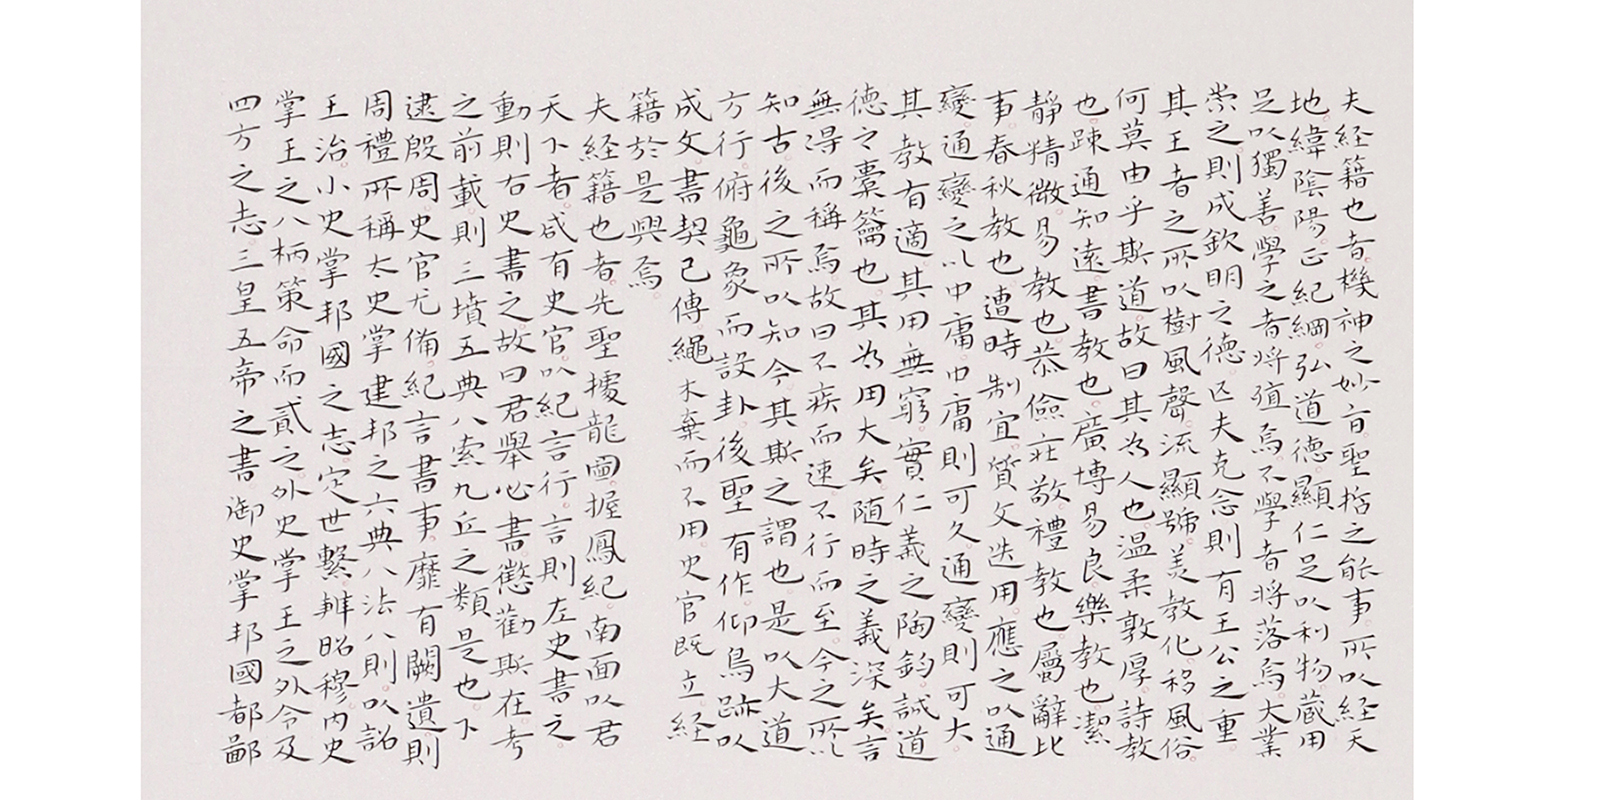 夫経籍也者機神之妙旨聖哲之能事所以経天
地緯陰陽正紀綱弘道徳顯仁足以利物蔵用
足以獨善學之者将殖焉不學者将落焉大業
崇之則成欽明之徳匹夫克念則有王公之重
其王者之所以樹風聲流顯號美教化移風俗
何莫由乎斯道故曰其為人也温柔敦厚詩教
也踈通知遠書教也廣博易良樂教也潔
静精微易教也恭儉荘敬禮教也属辭比
事春秋教也遭時制宜質文迭用應之以通
變通變之以中庸中庸則可久通變則可大
其教有適其用無窮實仁義之陶鈞誠道
徳之橐籥也其為用大矣随時之義深矣言
無得而稱焉故曰不疾而速不行而至今之所以
知古後之所以知今其斯之謂也是以大道
方行俯龜象而設卦後聖有作仰鳥跡以
成文書契已傳繩木棄而不用史官既立経
籍於是興焉
夫経籍也者先聖據龍圖握鳳紀南面以君
天下者咸有史官以紀言行言則左史書之
動則右史書之故曰君舉必書懲勸斯在考
之前載則三墳五典八索九丘之類是也下
逮殷周史官尤備紀言書事靡有闕遺則
周禮所稱太史掌建邦之六典八法八則以詔
王治小史掌邦國之志定世繋辨昭穆内史
掌王之八柄策命而貳之外史掌王之外令及
四方之志三皇五帝之書御史掌邦國都鄙